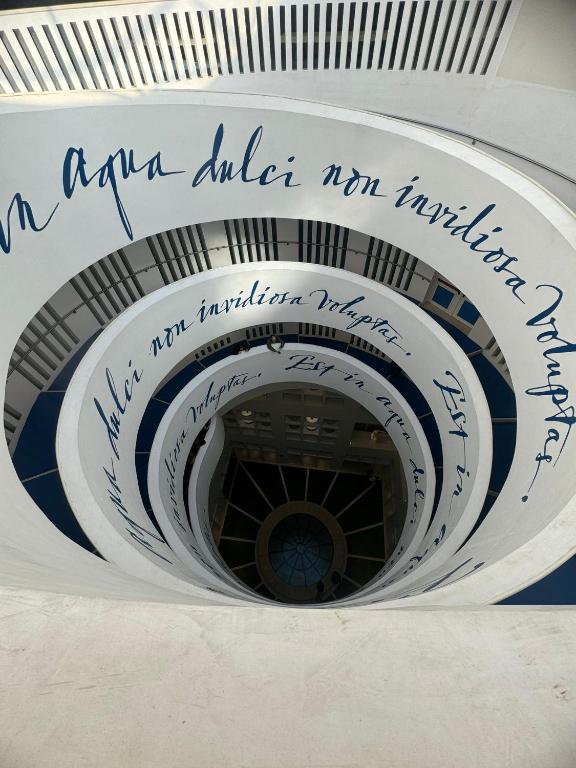 in aqua dulci non invidiosa voluptas.
aqua dulci non invidiosa voluptas. Est in
voluptas. Est in aqua dulci